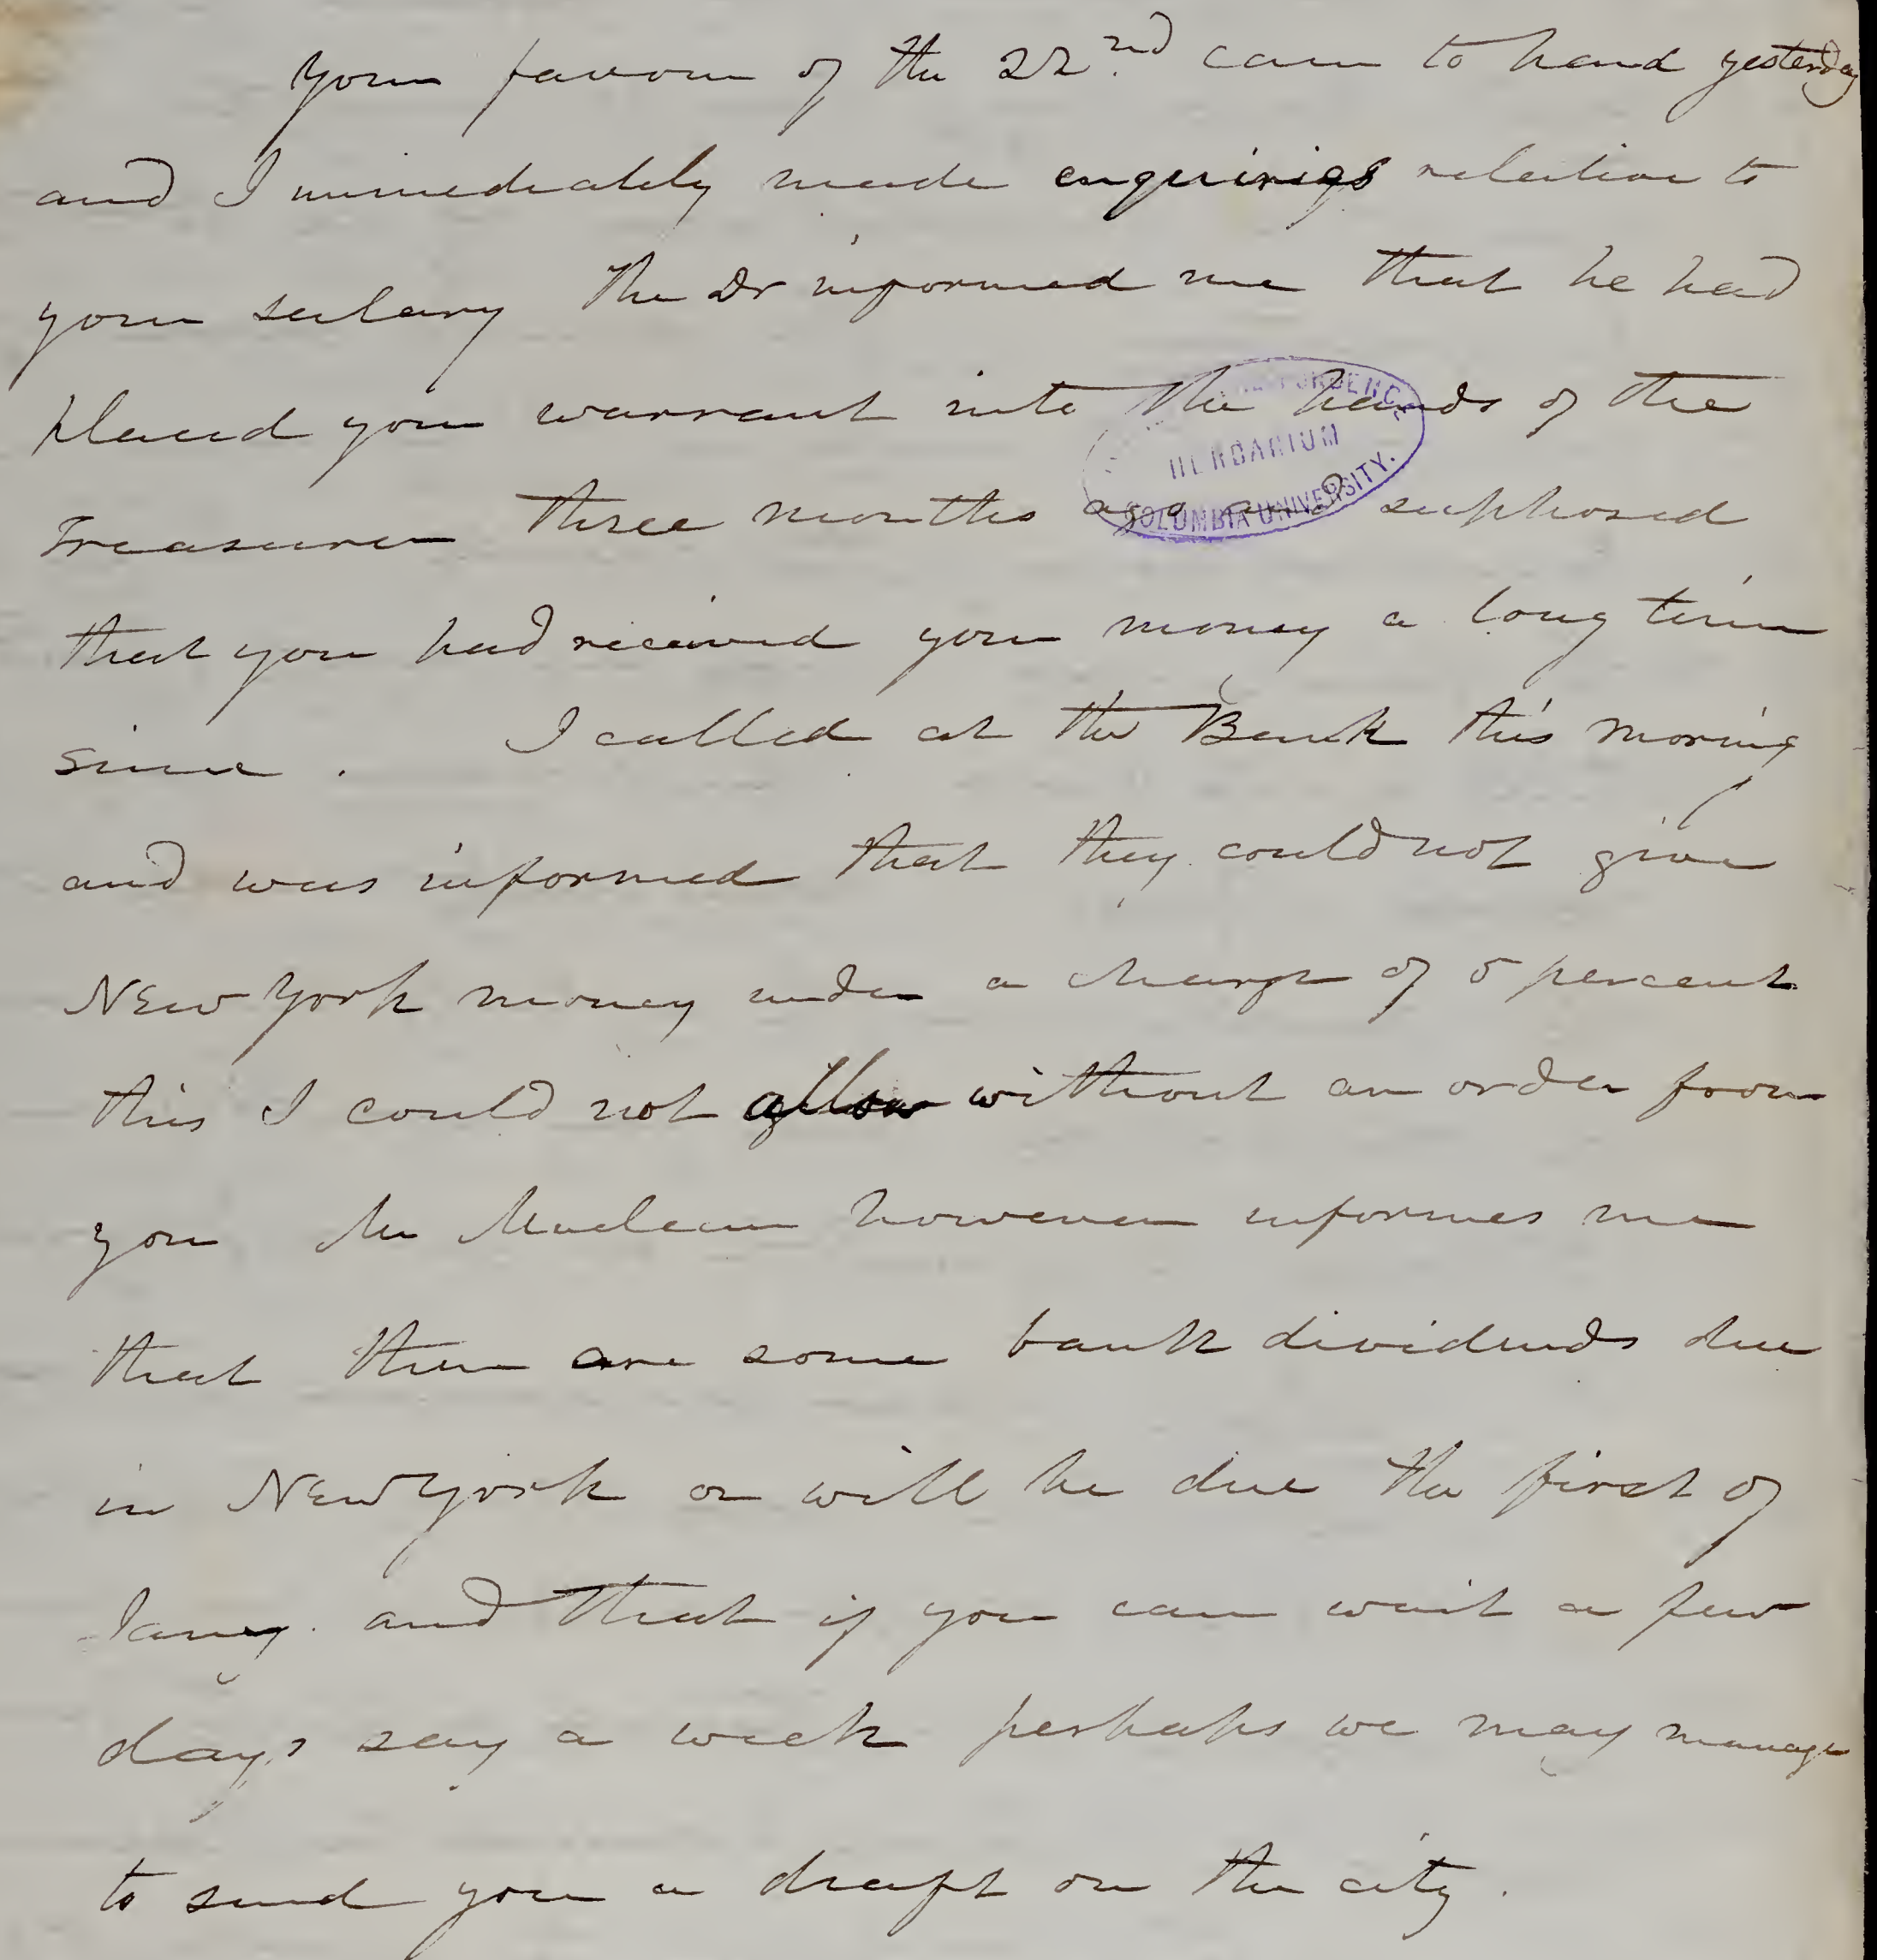 Your favour of the 22nd came to hand yesterday
and I immediately made enquiries relative to
your salary The Dr informed me that he had
placed your warrant into the hands of the
HERBARIUM
COLUMBIA UNIVERSITY.
Treasurer three months ago and supposed
that you had received your money a long time
since. I called at the Bank this morning
and was informed that they could not give
New York money under a charge of 5 percent
this I could not allow without an order from
you Mr Maclean however informes me
that there are some bank dividends due
in New York or will be due the first of
Jany. and that if you can wait a few
days say a week perhaps we may manage
to send you a draft on the city.